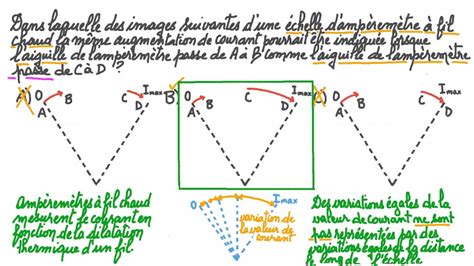 Dans laquelle des images suivantes d'une échelle d'ampèremètre à fil
chaud la même augmentation de courant pourrait être indiquée lorsque
l'aiguille de l'ampèremètre passe de A à B comme l'aiguille de l'ampèremètre
passe de C à D ?
A) O B C Imax
A D
B) O B C Imax
A D
C) O B C Imax
A D
Ampèremètres à fil chaud
mesurent le courant en
fonction de la dilatation
thermique d'un fil.
O Imax
variation de
la valeur de
courant
Des variations égales de la
valeur de courant ne sont
pas représentées par des
variations égales de la distance
le long de l'échelle